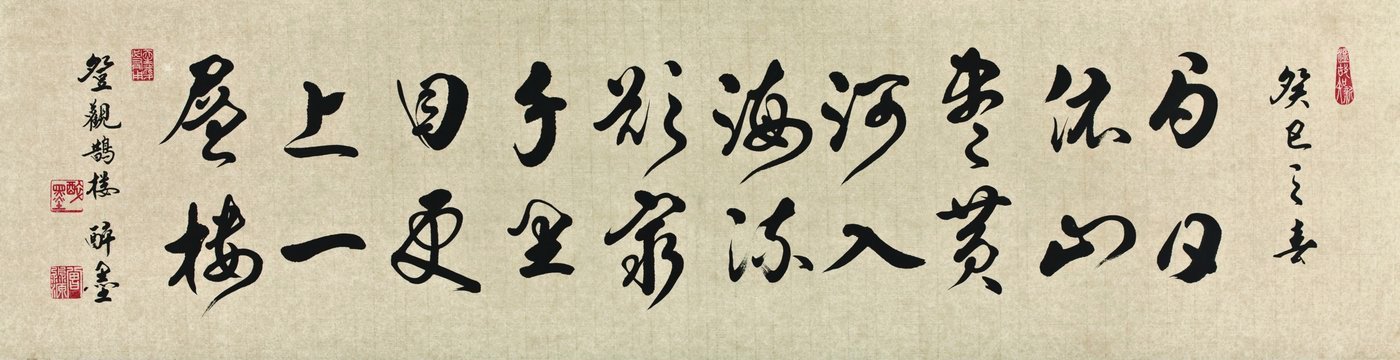 癸巳之春
白日
依山
盡黄
河入
海流
欲窮
千里
目更
上一
層楼
登觀鵲楼 醉墨